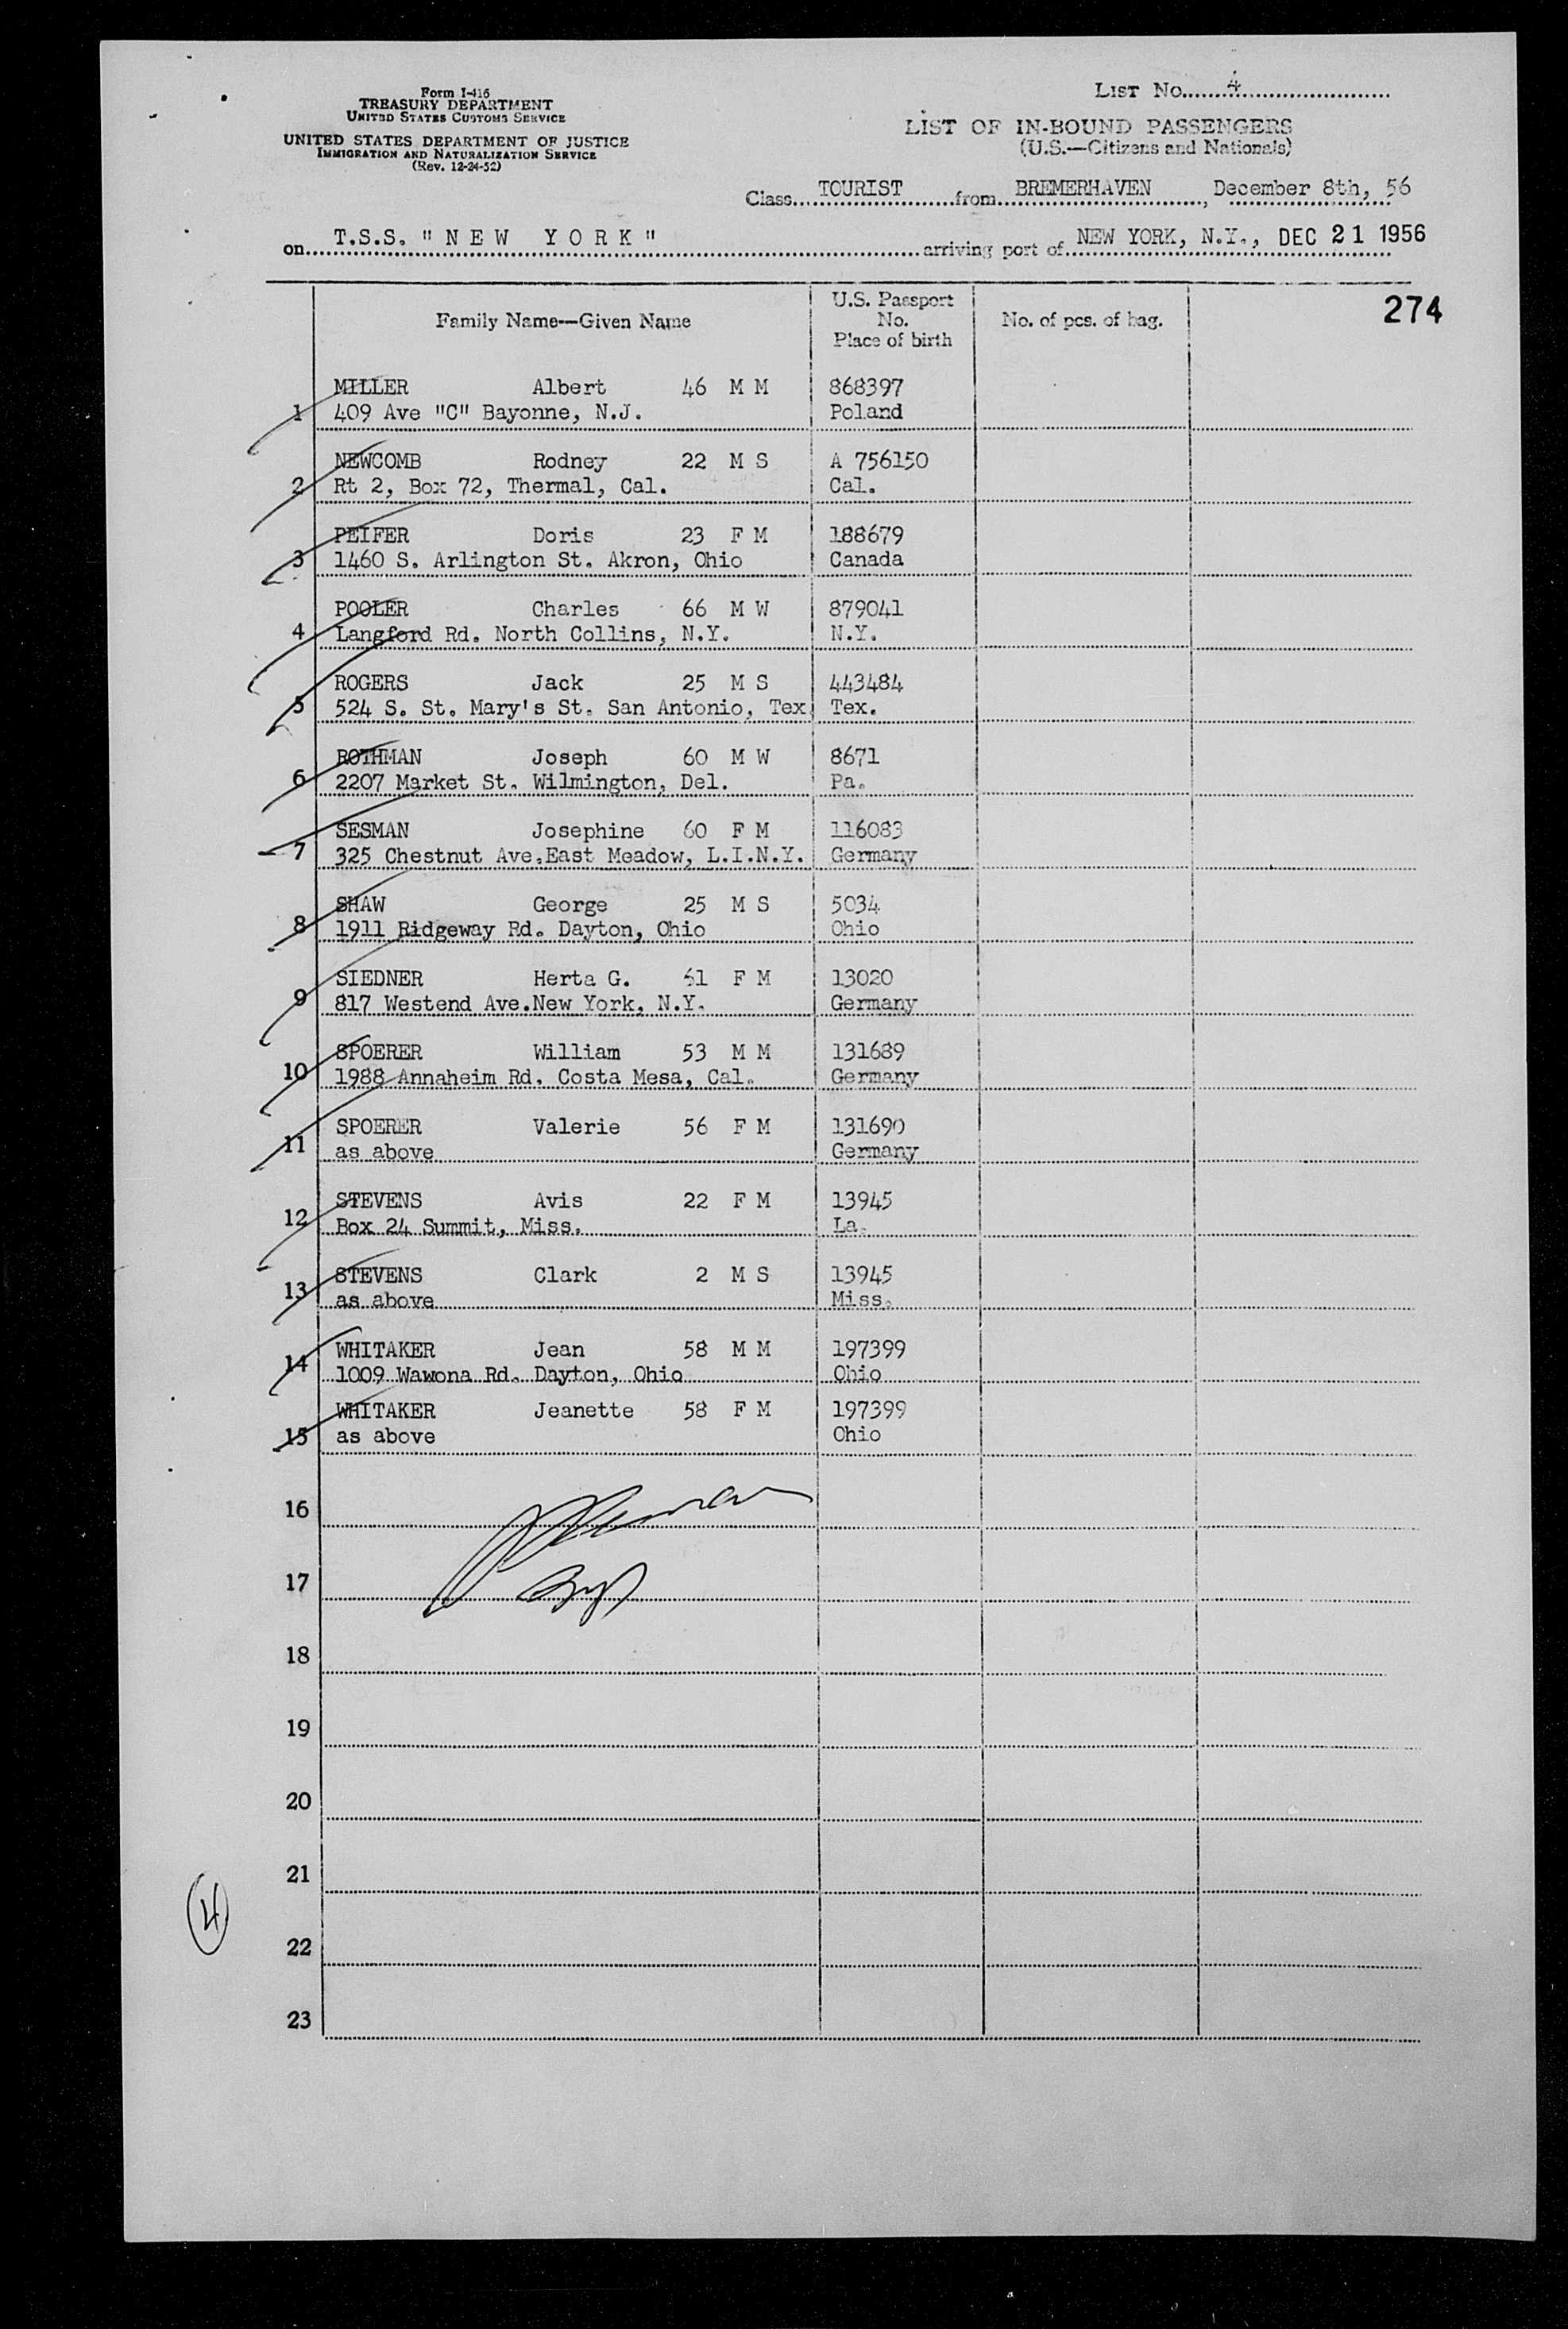 Form I-416
TREASURY DEPARTMENT
UNITED STATES CUSTOMS SERVICE
UNITED STATES DEPARTMENT OF JUSTICE
IMMIGRATION AND NATURALIZATION SERVICE
(Rev. 12-24-52)
LIST No. 4
LIST OF IN-BOUND PASSENGERS
(U.S.—Citizens and Nationals)
Class TOURIST from BREMERHAVEN, December 8th, 56
on T.S.S. "NEW YORK" arriving port of NEW YORK, N.Y., DEC 21 1956
Family Name—Given Name U.S. Passport No. Place of birth No. of pcs. of bag. 274
1 MILLER Albert 46 M M 868397
409 Ave "C" Bayonne, N.J. Poland
2 NEWCOMB Rodney 22 M S A 756150
Rt 2, Box 72, Thermal, Cal. Cal.
3 PEIFER Doris 23 F M 188679
1460 S. Arlington St. Akron, Ohio Canada
4 POOLER Charles 66 M W 879041
Langford Rd. North Collins, N.Y. N.Y.
5 ROGERS Jack 25 M S 443484
524 S. St. Mary's St. San Antonio, Tex Tex.
6 ROTHMAN Joseph 60 M W 8671
2207 Market St. Wilmington, Del. Pa.
7 SESMAN Josephine 60 F M 116083
325 Chestnut Ave.East Meadow, L.I.N.Y. Germany
8 SHAW George 25 M S 5034
1911 Ridgeway Rd. Dayton, Ohio Ohio
9 SIEDNER Herta G. 61 F M 13020
817 Westend Ave.New York, N.Y. Germany
10 SPOERER William 53 M M 131689
1988 Annaheim Rd. Costa Mesa, Cal. Germany
11 SPOERER Valerie 56 F M 131690
as above Germany
12 STEVENS Avis 22 F M 13945
Box 24 Summit, Miss. La.
13 STEVENS Clark 2 M S 13945
as above Miss.
14 WHITAKER Jean 58 M M 197399
1009 Wawona Rd. Dayton, Ohio Ohio
15 WHITAKER Jeanette 58 F M 197399
as above Ohio
16
17
18
19
20
21
22
23
4